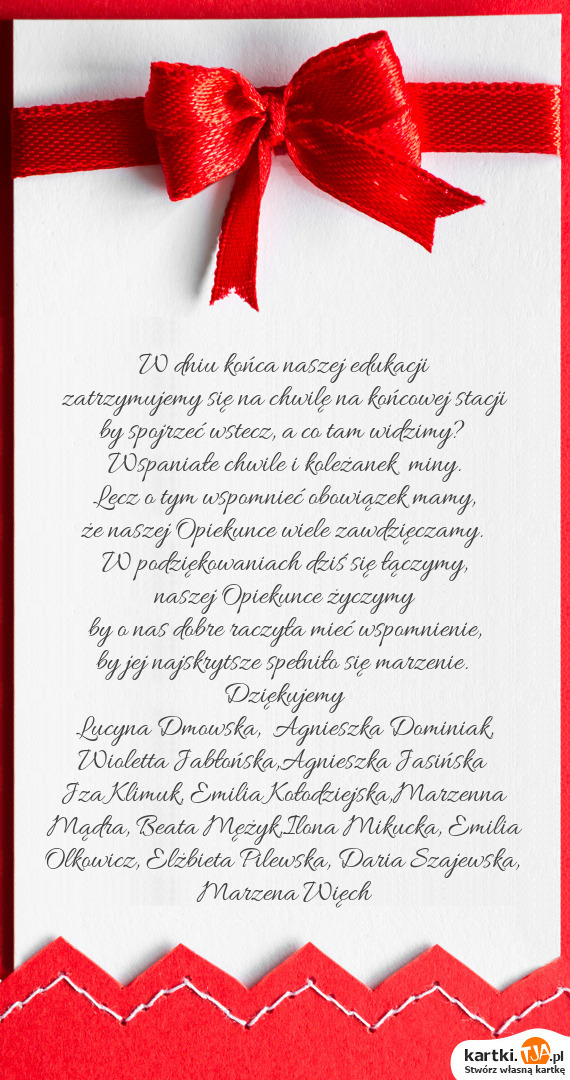 W dniu końca naszej edukacji
zatrzymujemy się na chwilę na końcowej stacji
by spojrzeć wstecz, a co tam widzimy?
Wspaniałe chwile i koleżanek miny.
Lecz o tym wspomnieć obowiązek mamy,
że naszej Opiekunce wiele zawdzięczamy.
W podziękowaniach dziś się łączymy,
naszej Opiekunce życzymy
by o nas dobre raczyła mieć wspomnienie,
by jej najskrytsze spełniło się marzenie.
Dziękujemy
Lucyna Dmowska, Agnieszka Dominiak,
Wioletta Jabłońska,Agnieszka Jasińska
Iza Klimuk, Emilia Kołodziejska,Marzenna
Mądra, Beata Mężyk,Ilona Mikucka, Emilia
Olkowicz, Elżbieta Pilewska, Daria Szajewska,
Marzena Więch
kartki.TJA.pl
Stwórz własną kartkę